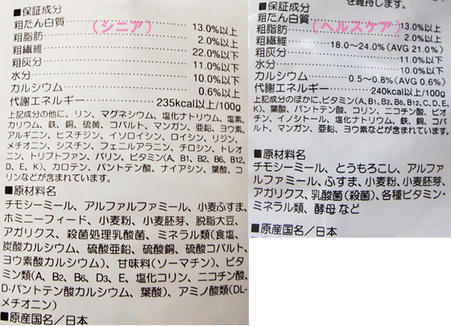 ■保証成分
粗たん白質 (シニア) 13.0%以上
粗脂肪 2.0%以上
粗繊維 22.0%以下
粗灰分 11.0%以下
水分 10.0%以下
カルシウム 0.6%以上
代謝エネルギー 235kcal以上/100g
上記成分の他に、リン、マグネシウム、塩化ナトリウム、塩素、
カリウム、鉄、銅、硫酸、コバルト、マンガン、亜鉛、ヨウ素、
アルギニン、ヒスチジン、イソロイシン、ロイシン、リジン、
メチオニン、シスチン、フェニルアラニン、チロシン、トレオ
ニン、トリプトファン、バリン、ビタミン(A、B1、B2、B6、B12、
D、E、K)、カロテン、パンテン酸、ナイアシン、葉酸、コ
リンなどが含まれています。
■原材料名
チモシーミール、アルファルファミール、小麦ふすま、
ホミニーフィード、小麦粉、小麦胚芽、脱脂大豆、
アガリクス、殺菌処理乳酸菌、ミネラル類(食塩、
炭酸カルシウム、硫酸亜鉛、硫酸銅、硫酸コバルト、
ヨウ素酸カルシウム)、甘味料(ソーマチン)、ビタ
ミン類(A、B2、B6、D3、E、塩化コリン、ニコチン酸、
D-パントテン酸カルシウム、葉酸)、アミノ酸類(DL-
メチオニン)
■原産国名/日本
を維持します。
■保証成分
粗たん白質 (ヘルスケア) 13.0%以上
粗脂肪 2.0%以上
粗繊維 18.0~24.0%(AVG 21.0%)
粗灰分 11.0%以下
水分 10.0%以下
カルシウム 0.5~0.8%(AVG 0.64%)
代謝エネルギー 240kcal以上/100g
上記成分のほかに、ビタミン(A、B1、B2、B6、B12、C、D、E、
K)、パントテン酸、葉酸、コリン、ニコチン酸、ビオ
チン、イノシトール、塩化ナトリウム、鉄、銅、コバ
ルト、マンガン、亜鉛、ヨウ素などが含まれています。
■原材料名
チモシーミール、とうもろこし、アルファ
ルファミール、ふすま、小麦粉、小麦胚芽、
アガリクス、乳酸菌(殺菌)、各種ビタミン・
ミネラル類、酵母など
■原産国名/日本